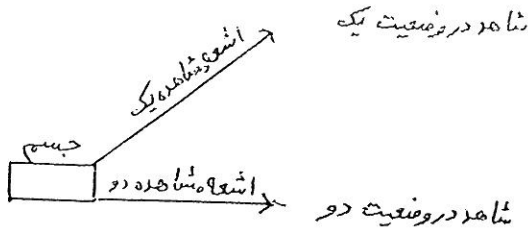 شاهد در وضعیت یک
اشعه مشاهده یک
جسم
اشعه مشاهده دو
شاهد در وضعیت دو